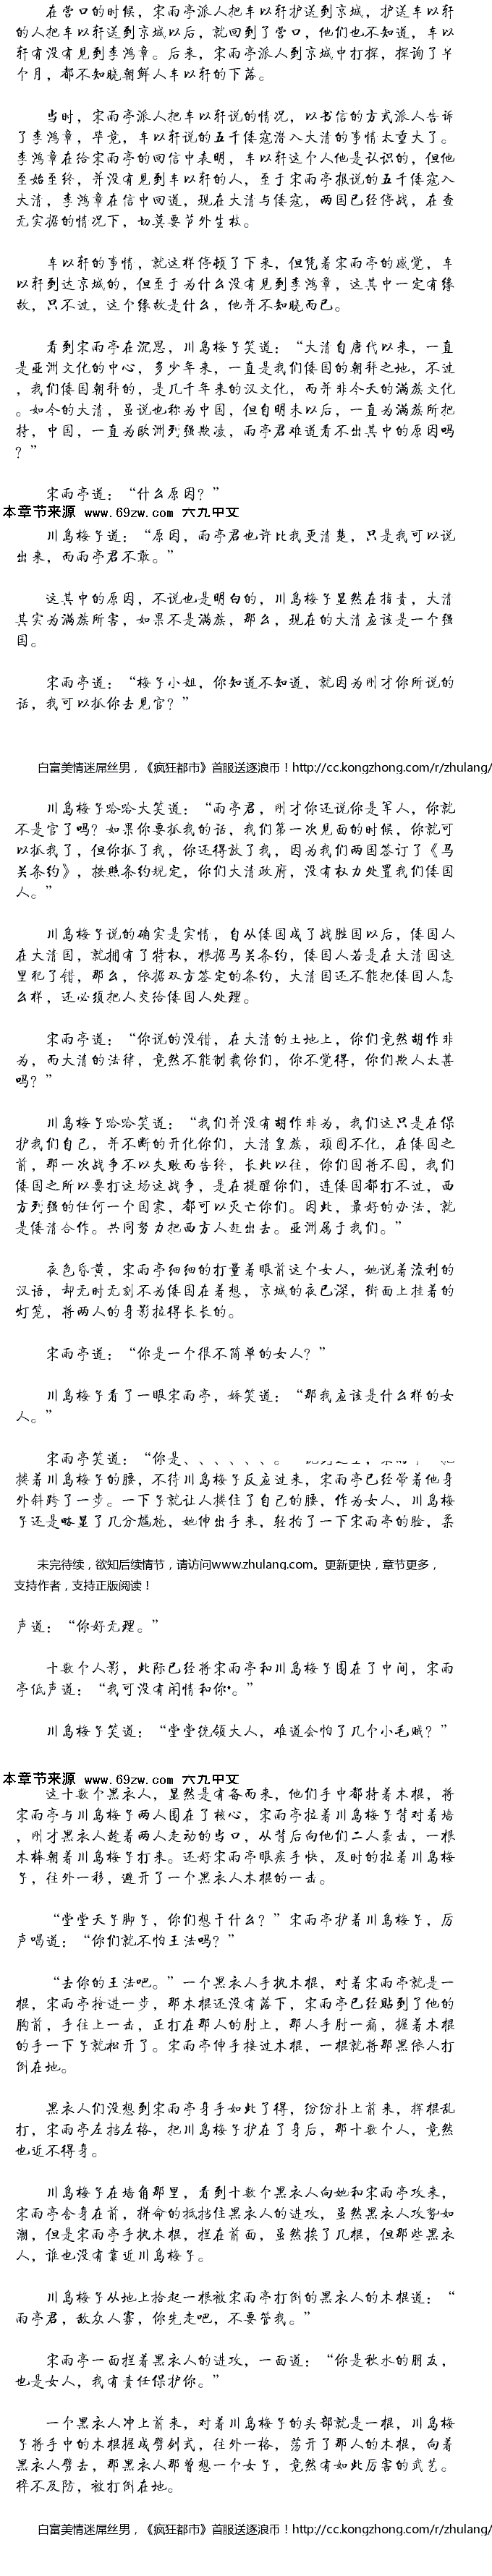 在营口的时候，宋雨亭派人把车以轩护送到京城，护送车以轩
的人把车以轩送到京城以后，就回到了营口，他们也不知道，车以
轩有没有见到李鸿章。后来，宋雨亭派人到京城中打探，探询了半
个月，都不知晓朝鲜人车以轩的下落。
当时，宋雨亭派人把车以轩说的情况，以书信的方式派人告诉
了李鸿章，毕竟，车以轩说的五千倭寇潜入大清的事情太重大了。
李鸿章在给宋雨亭的回信中表明，车以轩这个人他是认识的，但他
至始至终，并没有见到车以轩的人，至于宋雨亭报说的五千倭寇入
大清，李鸿章在信中回道，现在大清与倭寇，两国已经停战，在查
无实据的情况下，切莫要节外生枝。
车以轩的事情，就这样停顿了下来，但凭着宋雨亭的感觉，车
以轩到达京城的，但至于为什么没有见到李鸿章，这其中一定有缘
故，只不过，这个缘故是什么，他并不知晓而已。
看到宋雨亭在沉思，川岛梅子笑道：“大清自唐代以来，一直
是亚洲文化的中心，多少年来，一直是我们倭国的朝拜之地，不过
，我们倭国朝拜的，是几千年来的汉文化，而并非今天的满族文化
。如今的大清，虽说也称为中国，但自明末以后，一直为满族所把
持，中国，一直为欧洲列强欺凌，雨亭君难道看不出其中的原因吗
？”
宋雨亭道：“什么原因？”
本章节来源 www.69zw.com 六九中文
川岛梅子道：“原因，雨亭君也许比我更清楚，只是我可以说
出来，而雨亭君不敢。”
这其中的原因，不说也是明白的，川岛梅子显然在指责，大清
其实为满族所害，如果不是满族，那么，现在的大清应该是一个强
国。
宋雨亭道：“梅子小姐，你知道不知道，就因为刚才你所说的
话，我可以抓你去见官？”
白富美情迷屌丝男，《疯狂都市》首服送逐浪币！http://cc.kongzhong.com/r/zhulang/
川岛梅子哈哈大笑道：“雨亭君，刚才你还说你是军人，你就
不是官了吗？如果你要抓我的话，我们第一次见面的时候，你就可
以抓我了，但你抓了我，你还得放了我，因为我们两国签订了《马
关条约》，按照条约规定，你们大清政府，没有权力处置我们倭国
人。”
川岛梅子说的确实是实情，自从倭国成了战胜国以后，倭国人
在大清国，就拥有了特权，根据马关条约，倭国人若是在大清国这
里犯了错，那么，依据双方签定的条约，大清国还不能把倭国人怎
么样，还必须把人交给倭国人处理。
宋雨亭道：“你说的没错，在大清的土地上，你们竟然胡作非
为，而大清的法律，竟然不能制裁你们，你不觉得，你们欺人太甚
吗？”
川岛梅子哈哈笑道：“我们并没有胡作非为，我们这只是在保
护我们自己，并不断的开化你们，大清皇族，顽固不化，在倭国之
前，那一次战争不以失败而告终，长此以往，你们国将不国，我们
倭国之所以要打这场这战争，是在提醒你们，连倭国都打不过，西
方列强的任何一个国家，都可以灭亡你们。因此，最好的办法，就
是倭清合作。共同努力把西方人赶出去。亚洲属于我们。”
夜色昏黄，宋雨亭细细的打量着眼前这个女人，她说着流利的
汉语，却无时无刻不为倭国在着想，京城的夜已深，街面上挂着的
灯笼，将两人的身影拉得长长的。
宋雨亭道：“你是一个很不简单的女人？”
川岛梅子看了一眼宋雨亭，娇笑道：“那我应该是什么样的女
人。”
宋雨亭笑道：“你是、、、、、、。
搂着川岛梅子的腰，不待川岛梅子反应过来，宋雨亭已经带着他身
外斜跨了一步。一下子就让人搂住了自己的腰，作为女人，川岛梅
子还是略显了几分尴尬，她伸出手来，轻抬了一下宋雨亭的脸，柔
未完待续，欲知后续情节，请访问www.zhulang.com。更新更快，章节更多，
支持作者，支持正版阅读！
声道：“你好无理。”
十数个人影，此际已经将宋雨亭和川岛梅子围在了中间，宋雨
亭低声道：“我可没有闲情和你。”
川岛梅子笑道：“堂堂统领大人，难道会怕了几个小毛贼？”
本章节来源 www.69zw.com 六九中文
这十数个黑衣人，显然是有备而来，他们手中都持着木棍，将
宋雨亭与川岛梅子两人围在了核心，宋雨亭拉着川岛梅子背对着墙
，刚才黑衣人趁着两人走动的当口，从背后向他们二人袭击，一根
木棒朝着川岛梅子打来。还好宋雨亭眼疾手快，及时的拉着川岛梅
子，往外一移，避开了一个黑衣人木棍的一击。
“堂堂天子脚子，你们想干什么？”宋雨亭护着川岛梅子，厉
声喝道：“你们就不怕王法吗？”
“去你的王法吧。”一个黑衣人手执木棍，对着宋雨亭就是一
棍，宋雨亭抢进一步，那木棍还没有落下，宋雨亭已经贴到了他的
胸前，手往上一击，正打在那人的肘上，那人手肘一痛，握着木棍
的手一下子就松开了。宋雨亭伸手接过木棍，一棍就将那黑依人打
倒在地。
黑衣人们没想到宋雨亭身手如此了得，纷纷扑上前来，挥棍乱
打，宋雨亭左挡右格，把川岛梅子护在了身后，那十数个人，竟然
也近不得身。
川岛梅子在墙角那里，看到十数个黑衣人向她和宋雨亭攻来，
宋雨亭舍身在前，拼命的抵挡住黑衣人的进攻，虽然黑衣人攻势如
潮，但是宋雨亭手执木棍，拦在前面，虽然挨了几棍，但那些黑衣
人，谁也没有靠近川岛梅子。
川岛梅子从地上拾起一根被宋雨亭打倒的黑衣人的木棍道：“
雨亭君，敌众人寡，你先走吧，不要管我。”
宋雨亭一面拦着黑衣人的进攻，一面道：“你是秋水的朋友，
也是女人，我有责任保护你。”
一个黑衣人冲上前来，对着川岛梅子的头部就是一棍，川岛梅
子将手中的木棍握成劈剑式，往外一格，荡开了那人的木棍，向着
黑衣人劈去，那黑衣人那曾想一个女子，竟然有如此厉害的武艺。
梓不及防，被打倒在地。
白富美情迷屌丝男，《疯狂都市》首服送逐浪币！http://cc.kongzhong.com/r/zhulang/